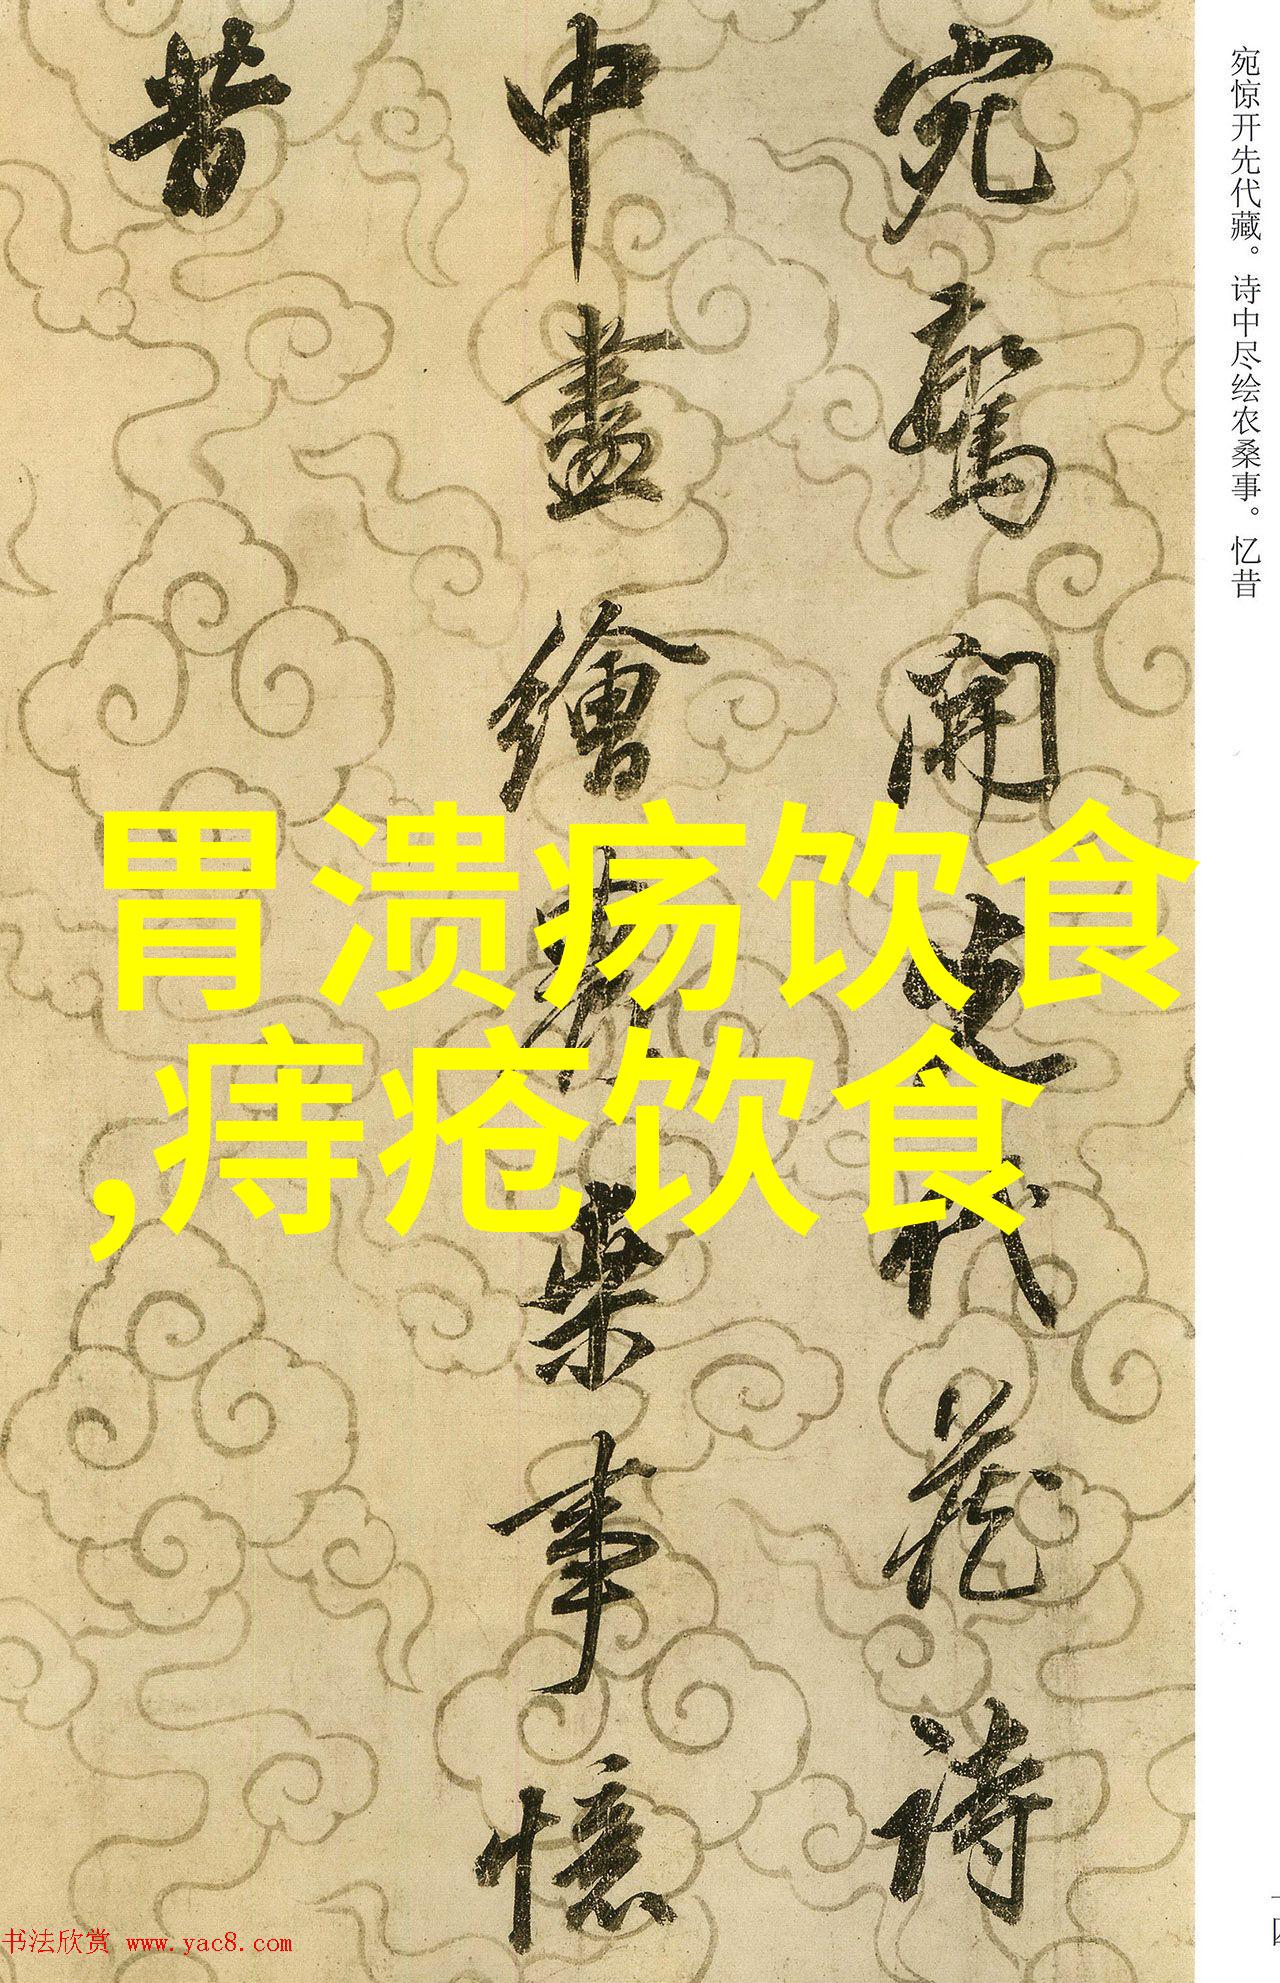 宛驚開先代藏詩
中盡繪農桑事憶
昔
宛惊开先代藏。诗中尽绘农桑事。忆昔
胃溃疡饮食
,痔疮饮食
书法欣赏 www.yac8.com